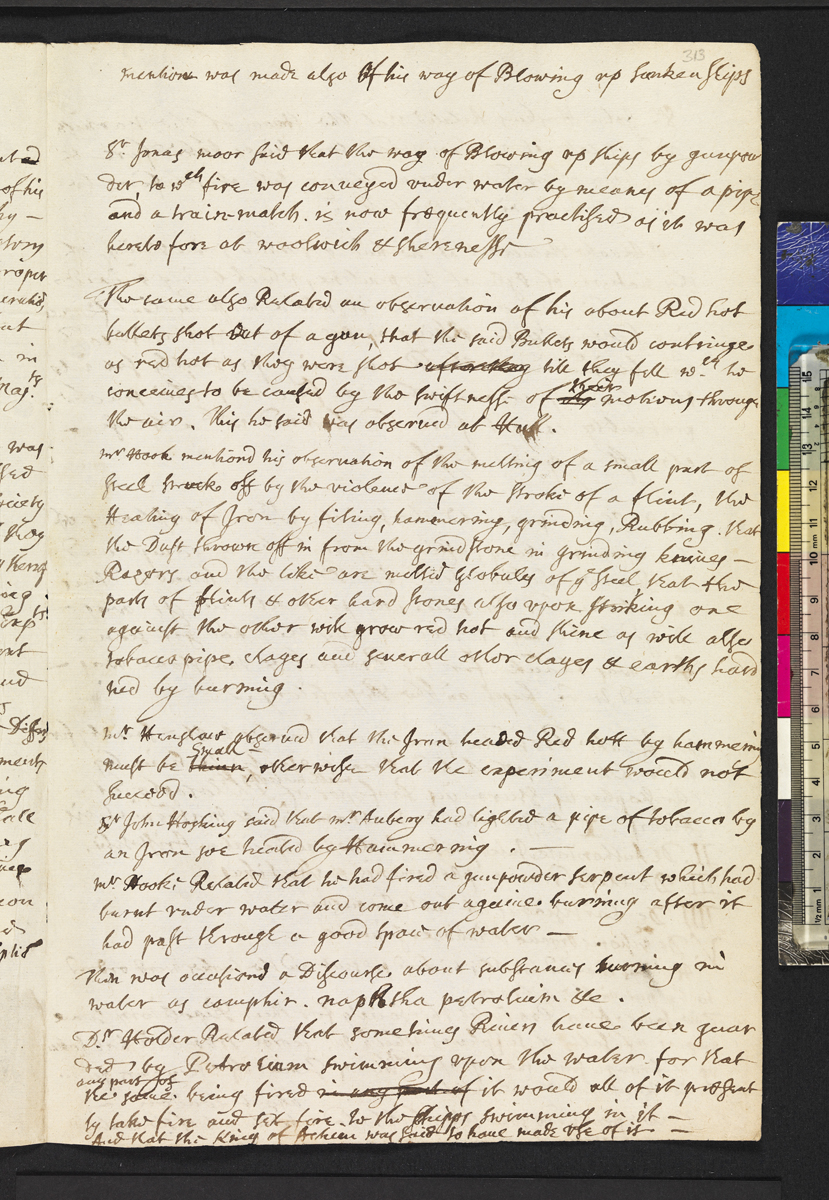 313
mention was made also Of his way of Blowing up sunken ships
Sr. Jonas moor said that the way of Blowing up ships by gunpow
der, to wch fire was conveyed under water by means of a pipe
and a train-match. is now frequently practised as it was
hereto fore at woolwich & sherenesse
The same also Related an observation of his about Red hot
bullets shot Out of a gun, that the said Bullets would continue
as red hot as they were shot till they fell wch he
conceives to be caused by the swiftness of their motions through
the air. This he said was observed at Hull.
mr Hook mentiond his observation of the melting of a small part of
steel struck off by the violence of the stroke of a flint, the
Heating of Iron by filing, hammering, grinding, Rubbing. that
the Dust thrown off in from the grindstone in grinding knives -
Rasors and the like are melted globules of ye steel that the
parts of flints & other hard stones also upon striking one
against the other will grow red hot and shine as will also
tobacco pipe clayes and severall other clayes & earths hard
ned by burning.
mr Henshaw observed that the Iron heated Red hott by hammering
small
must be thinn, otherwise that the experiment would not
succeed.
Sr John Hosking said that mr Aubery had lighted a pipe of tobacco by
an Iron soe heated by Hammering. -
mr Hooke Related that he had fired a gunpowder serpent which had
burnt under water and come out againe burning after it
had past through a good space of water -
then was occasiond a Discourse about substances burning in
water as camphir. naphtha petroleum &c.
Dr Holder Related that sometimes Rivers have been guar
ded by Petroleum swimming upon the water for that
any part of
the same being fired in any part of it would all of it present
ly take fire and set fire to the shipps swimming in it -
And that the King of Achem was said to have made use of it -